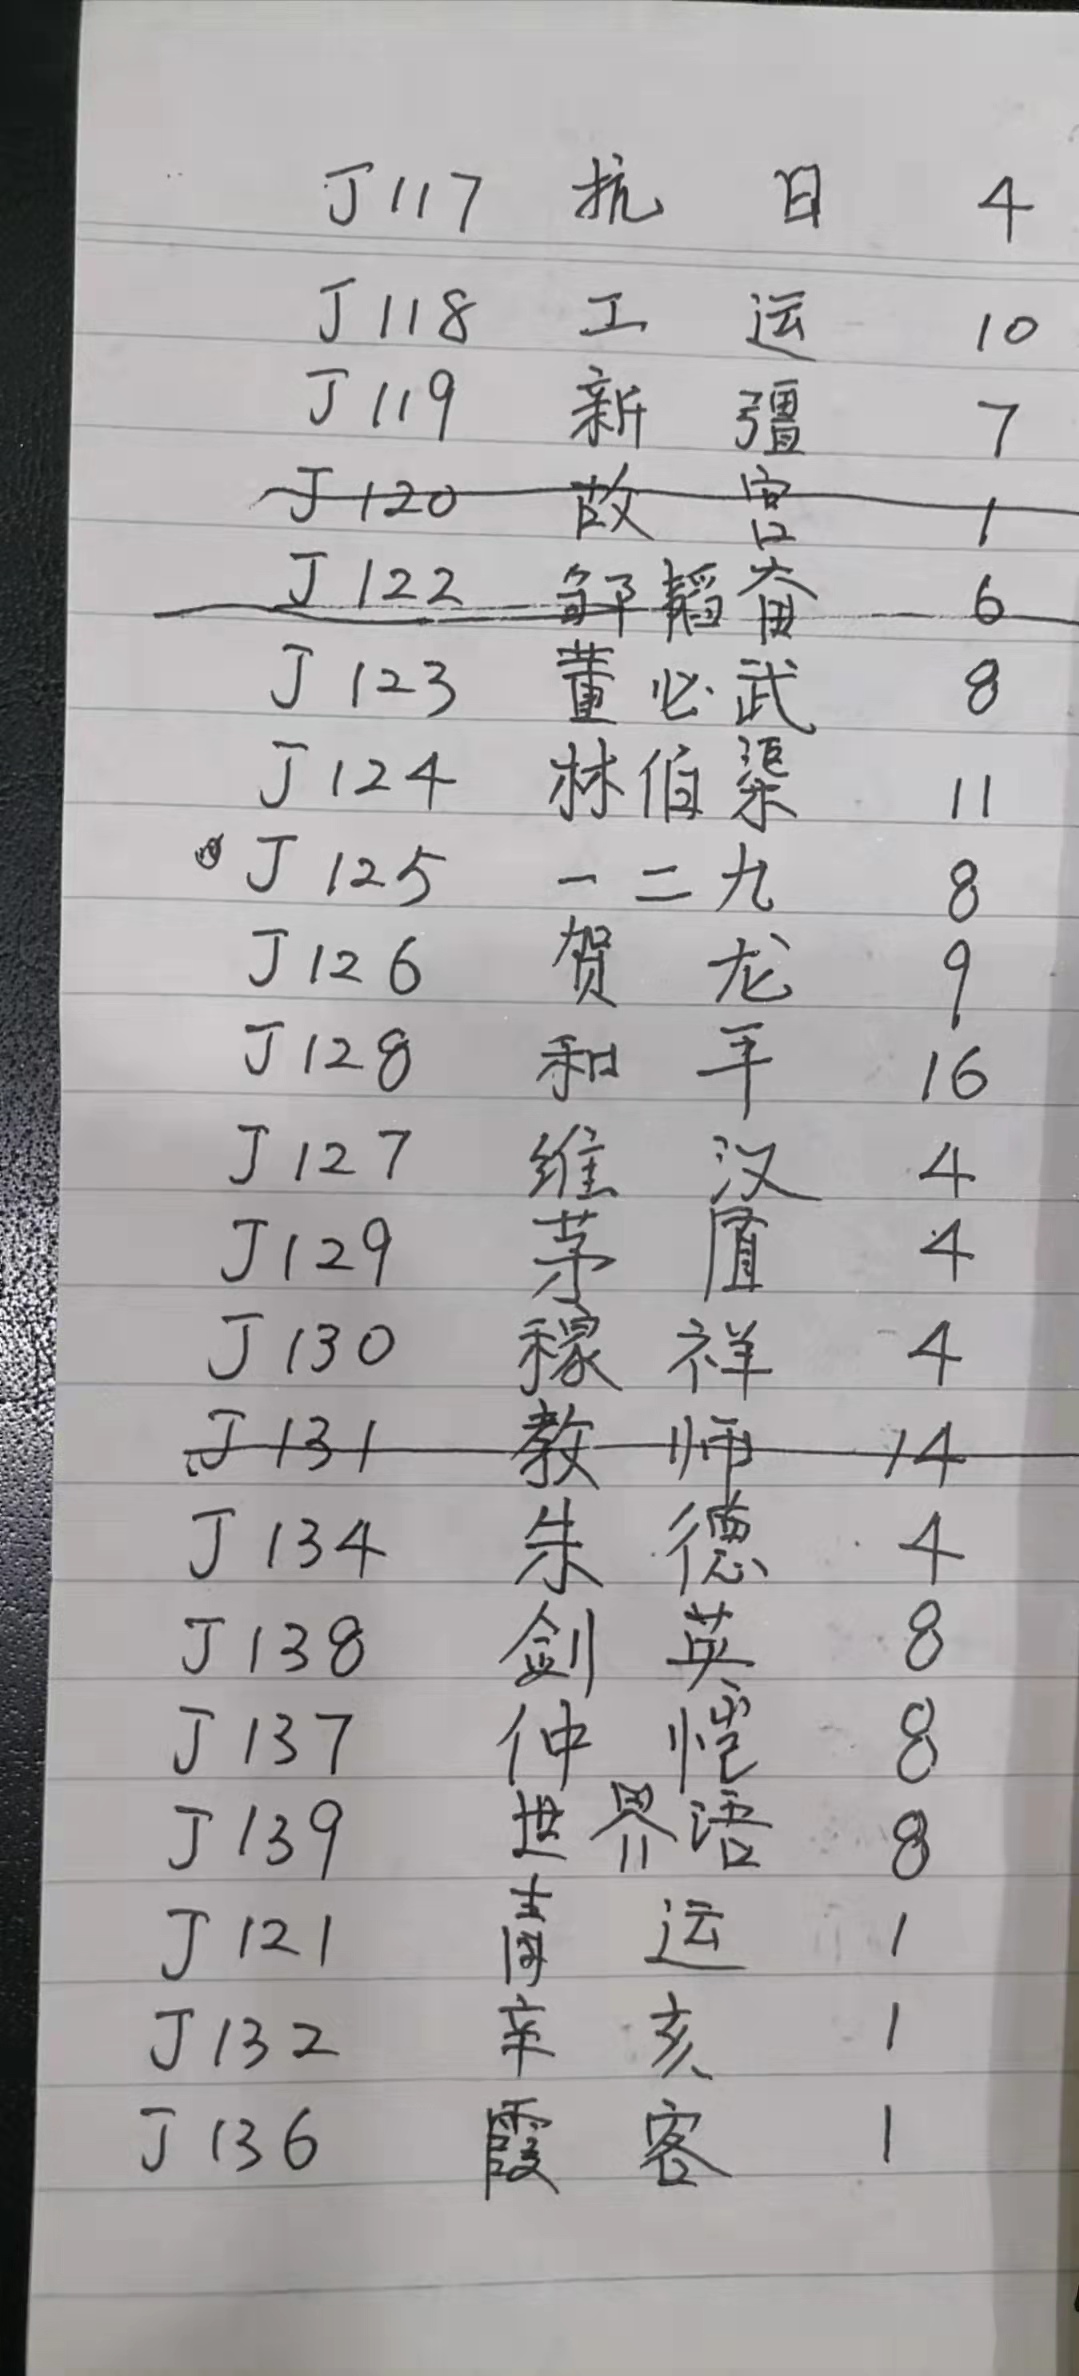 J117 抗日 4
J118 工运 10
J119 新疆 7
J120 故宫 1
J122 邹韬奋 6
J123 董必武 8
J124 林伯渠 11
J125 一二九 8
J126 贺龙 9
J128 和平 16
J127 维汉 4
J129 茅盾 4
J130 稼祥 4
J131 教师 14
J134 朱德 4
J138 剑英 8
J137 仲恺 8
J139 世界语 8
J121 青运 1
J132 辛亥 1
J136 霞客 1